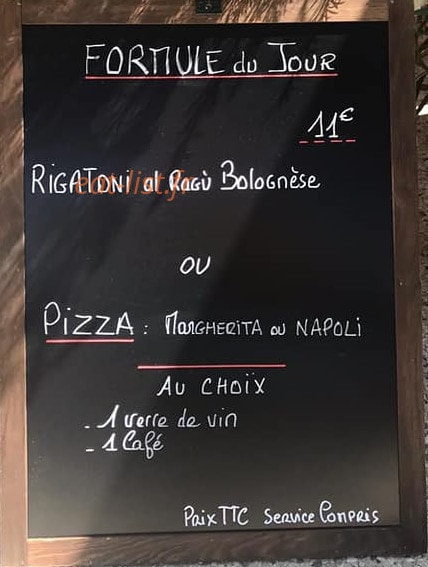 FORMULE du JOUR
11€
RIGATONI al Ragù Bolognèse
eat-list.fr
OU
PIZZA : MARGHERITA ou NAPOLI
AU CHOIX
- 1 verre de vin
- 1 Café
Prix TTC Service Compris